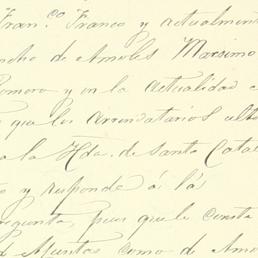 Fran.co Franco y actualmente
ncho de Amoles Maximo
Romero y en la actualidad e
que los arrendatarios ult
a la Hda. de Santa Cata
o y responde á lás
regunta, pues que le consta
Muntos como de Amo